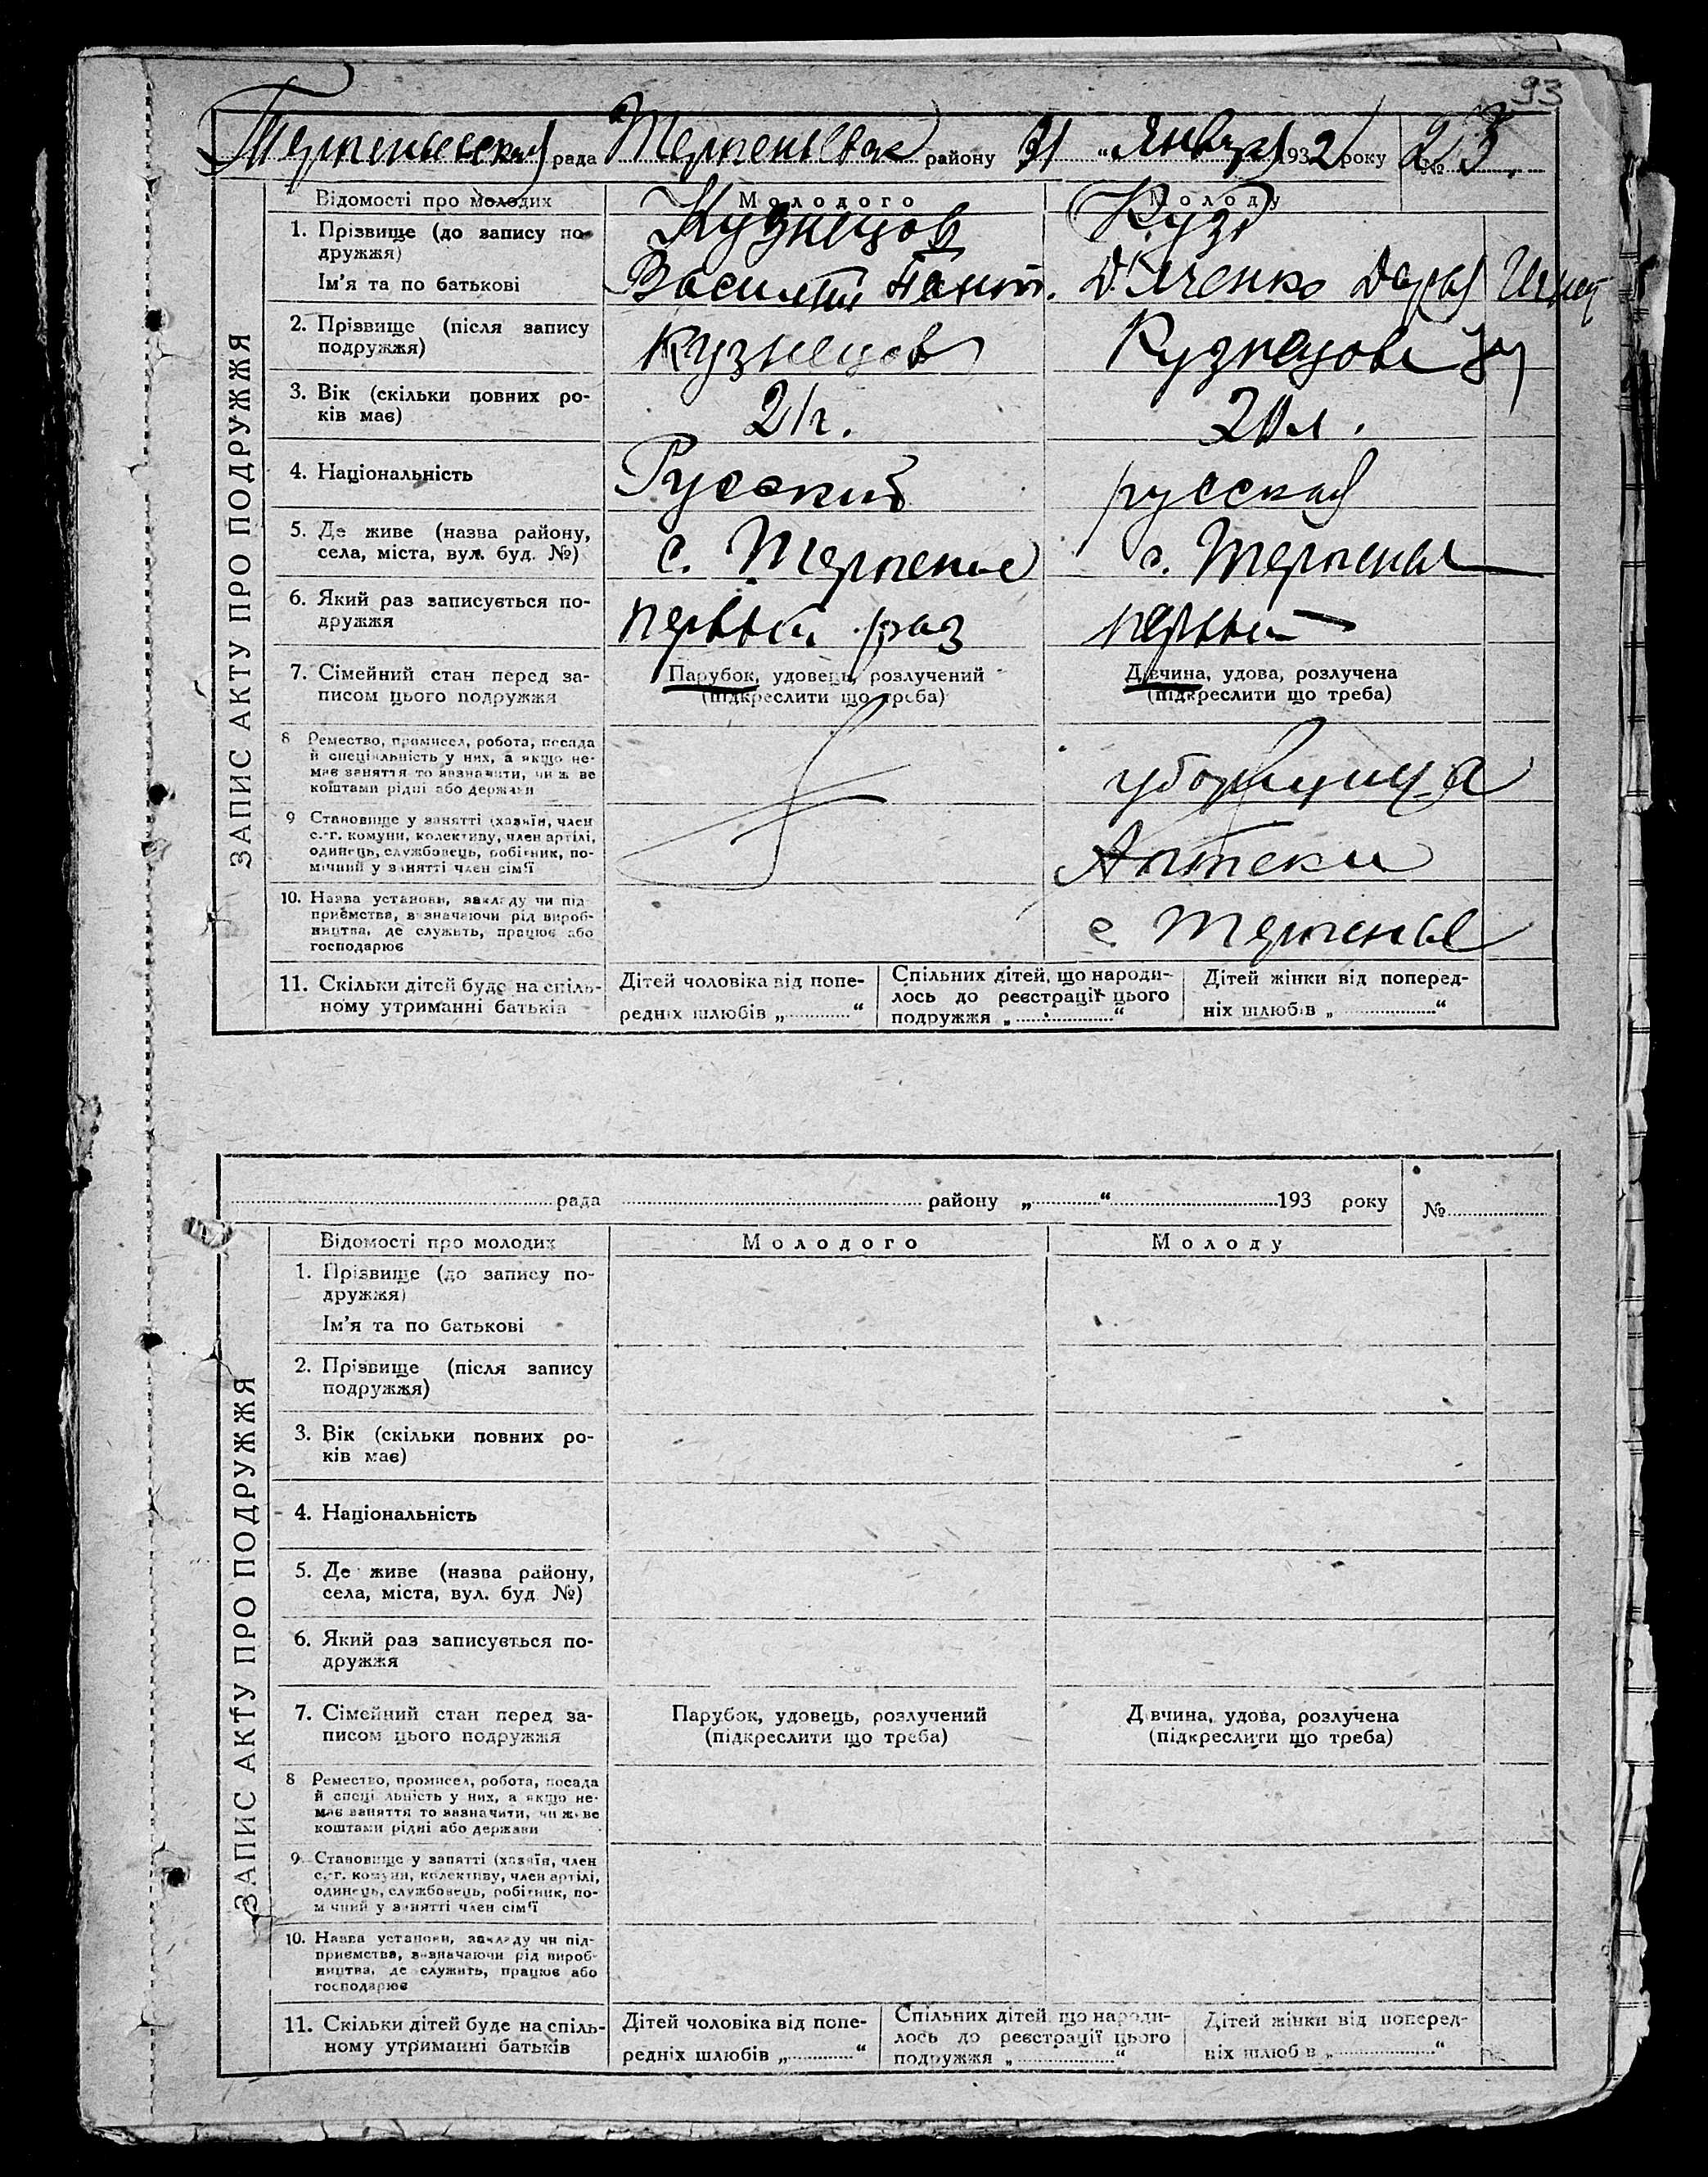 93
Терпеньевская рада Терпеньевск району 31 „ Января 1932 року № 23
Відомості про молодих Молодого Молоду
ЗАПИС АКТУ ПРО ПОДРУЖЖЯ
1. Прізвище (до запису по-
дружжя)
Кузнецов Кузн
Ім'я та по батькові Василий Пант. Дяченко Дарья Игнат
2. Прізвище (після запису
подружжя)
Кузнецов Кузнецова
3. Вік (скільки повних ро-
ків має)
21г. 20л.
4. Національність Русский русская
5. Де живе (назва району,
села, міста, вул. буд. №)
с. Терпение с. Терпенья
6. Який раз записується по-
дружжя
первый раз первый
7. Сімейний стан перед за-
писом цього подружжя
Парубок, удовець, розлучений
(підкреслити що треба)
Дівчина, удова, розлучена
(підкреслити що треба)
8 Ремество, промисел, робота, посада
й спеціальність у них, а якщо не-
має заняття то зазначити, чи ж ве
коштами рідні або держави
уборщица
9 Становище у занятті (хазяїн, член
с.-г. комуни, колективу, член артілі,
одинець, службовець, робітник, по-
мічний у занятті член сім'ї
Аптеки
10. Назва установи, закладу чи під-
приємства, визначаючи рід вироб-
ництва, де служить, працює або
господарює
с. Терпенье
11. Скільки дітей буде на спіль-
ному утриманні батьків
Дітей чоловіка від попе-
редніх шлюбів „ “
Спільних дітей, що народи-
лось до реєстрації цього
подружжя „ “
Дітей жінки від поперед-
ніх шлюбів „ “
рада району „ “ 193 року №
Відомості про молодих Молодого Молоду
ЗАПИС АКТУ ПРО ПОДРУЖЖЯ
1. Прізвище (до запису по-
дружжя)
Ім'я та по батькові
2. Прізвище (після запису
подружжя)
3. Вік (скільки повних ро-
ків має)
4. Національність
5. Де живе (назва району,
села, міста, вул. буд №)
6. Який раз записується по-
дружжя
7. Сімейний стан перед за-
писом цього подружжя
Парубок, удовець, розлучений
(підкреслити що треба)
Дівчина, удова, розлучена
(підкреслити що треба)
8 Ремество, промисел, робота, посада
й спеціальність у них, а якщо не-
має заняття то зазначити, чи ж ве
коштами рідні або держави
9. Становище у занятті (хазяїн, член
с.-г. комуни, колективу, член артілі,
одинець, службовець, робітник, по-
мічний у занятті член сім'ї
10. Назва установи, закладу чи під-
приємства, визначаючи рід вироб-
ництва, де служить, працює або
господарює
11. Скільки дітей буде на спіль-
ному утриманні батьків
Дітей чоловіка від попе-
редніх шлюбів „ “
Спільних дітей, що народи-
лось до реєстрації цього
подружжя „ “
Дітей жінки від поперед-
ніх шлюбів „ “